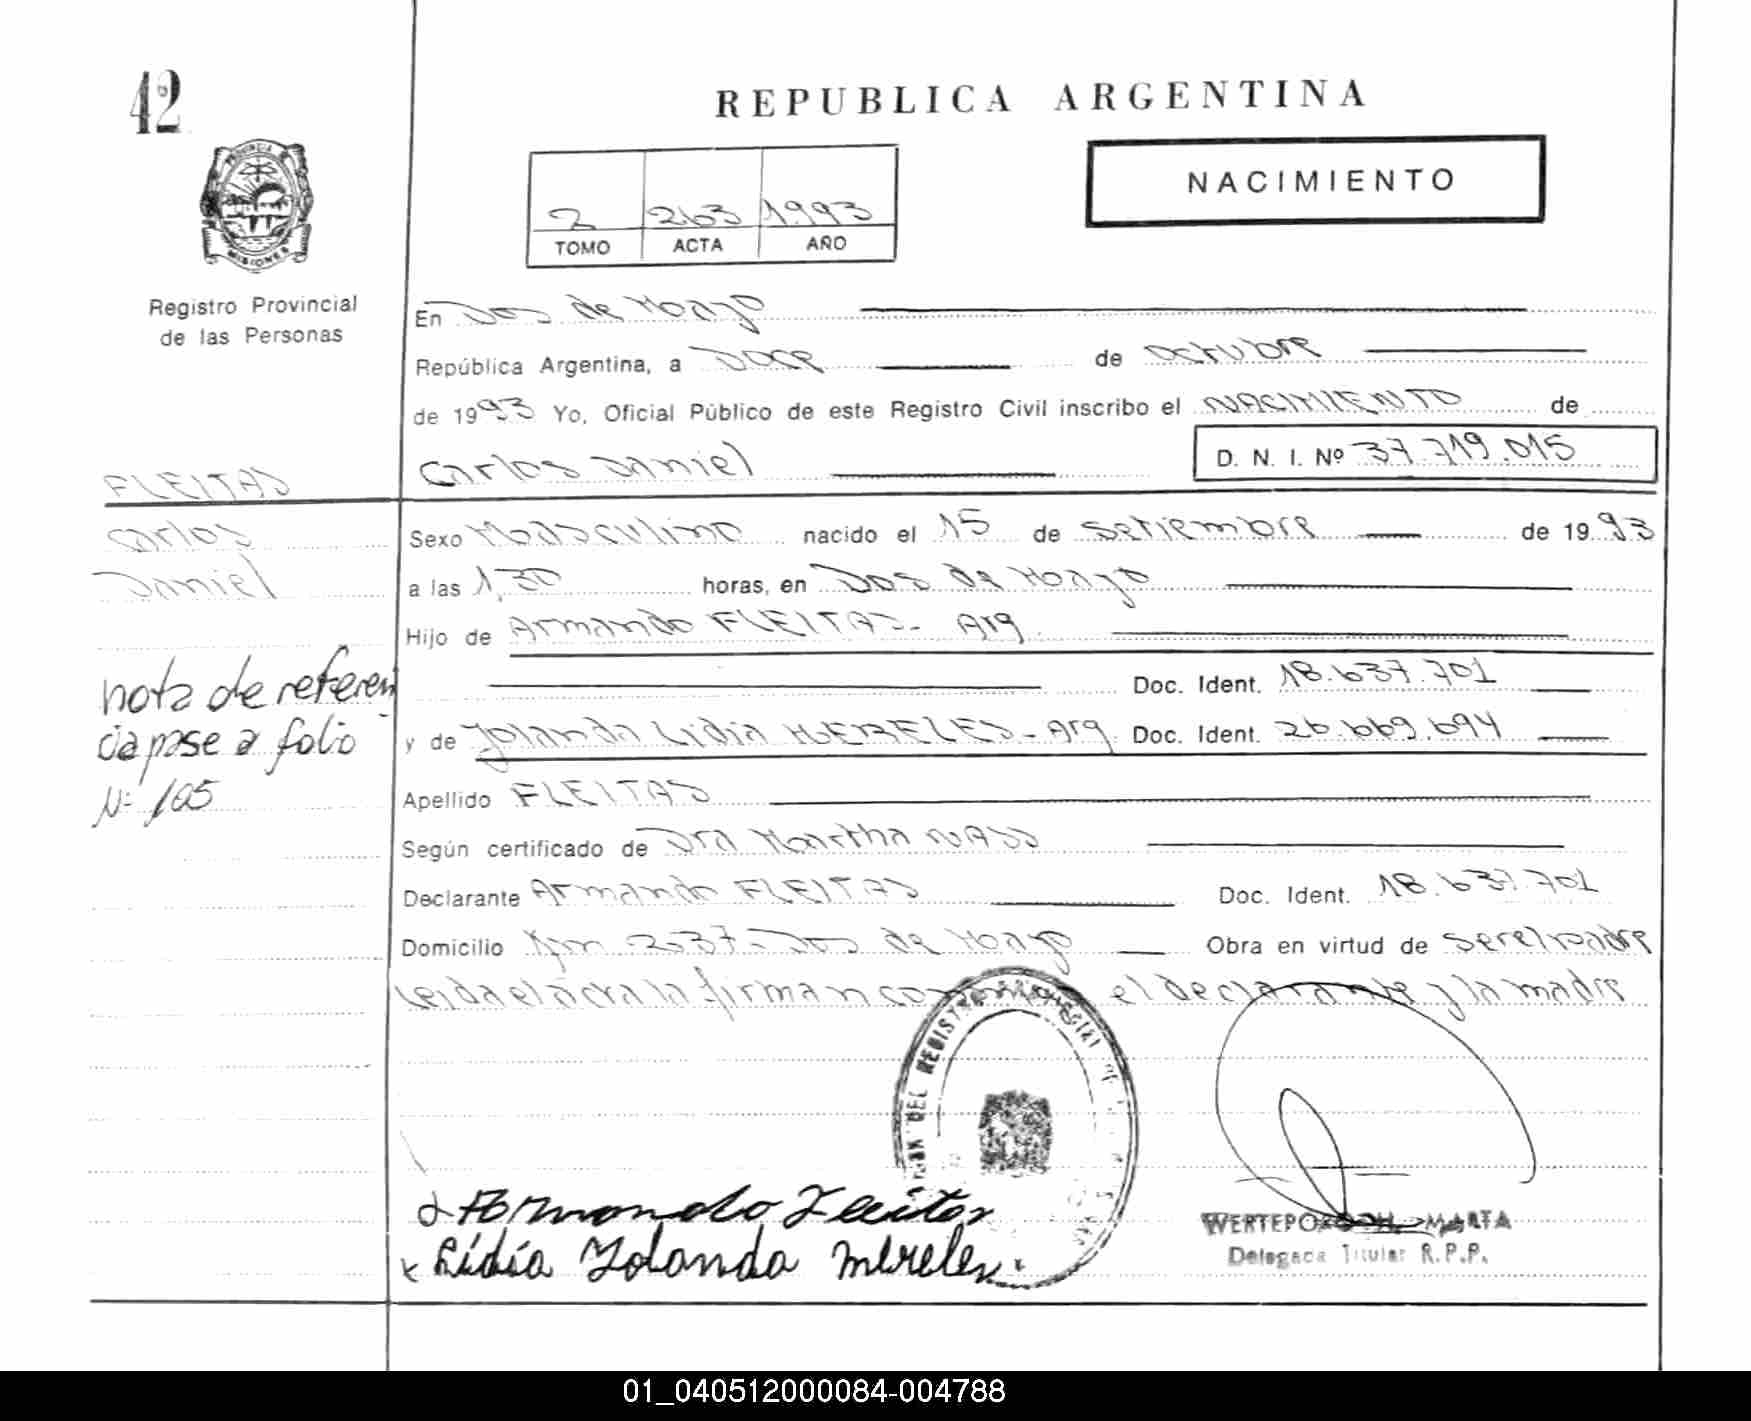 42
REPUBLICA ARGENTINA
NACIMIENTO
PROVINCIA DE
MISIONES
Registro Provincial
de las Personas
2 263 1993
TOMO ACTA AÑO
En Dos de Mayo
República Argentina, a Doce de octubre
de 1993 Yo, Oficial Público de este Registro Civil inscribo el NACIMIENTO de
Carlos Daniel D. N. I. Nº 37.719.015
FLEITAS
Carlos
Daniel
Sexo Masculino nacido el 15 de setiembre de 1993
a las 1,30 horas, en Dos de Mayo
Hijo de Armando FLEITAS- Arg
Doc. Ident. 18.637.701
nota de referen
cia pase a folio
Nº 105
y de Yolanda Lidia MERELES- Arg. Doc. Ident. 26.669.694
Apellido FLEITAS
Según certificado de Dra Martha NASS
Declarante Armando FLEITAS Doc. Ident. 18.637.701
Domicilio Km 237- Dos de Mayo Obra en virtud de ser el padre
Leida el acta la firman con el declarante y la madre
DEL REGISTRO PROVINCIAL
Armando Fleitas
Lidia Yolanda Mereles
MARTA
Delegada Titular R.P.P.
01_040512000084-004788